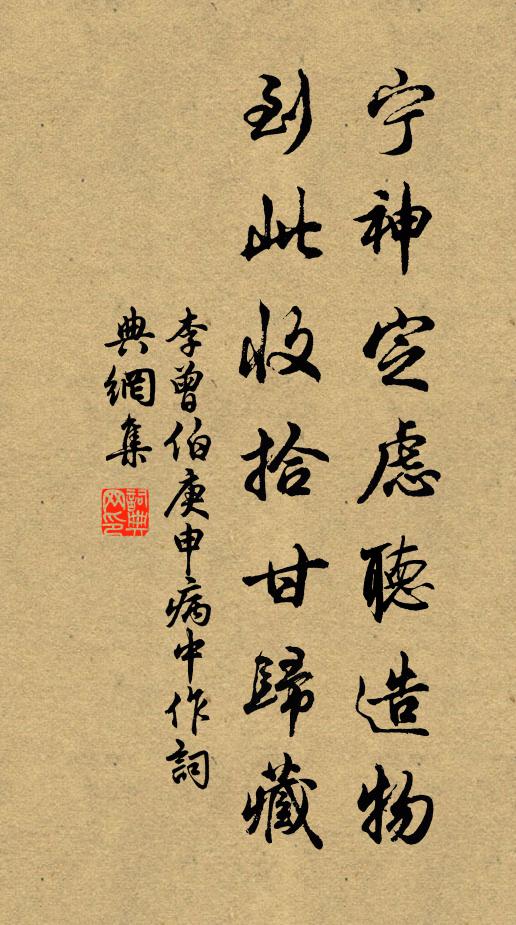 宁神定慮聽造物
到此收拾甘歸藏
李曾伯庚申病中作詞
典網集
詞典网印